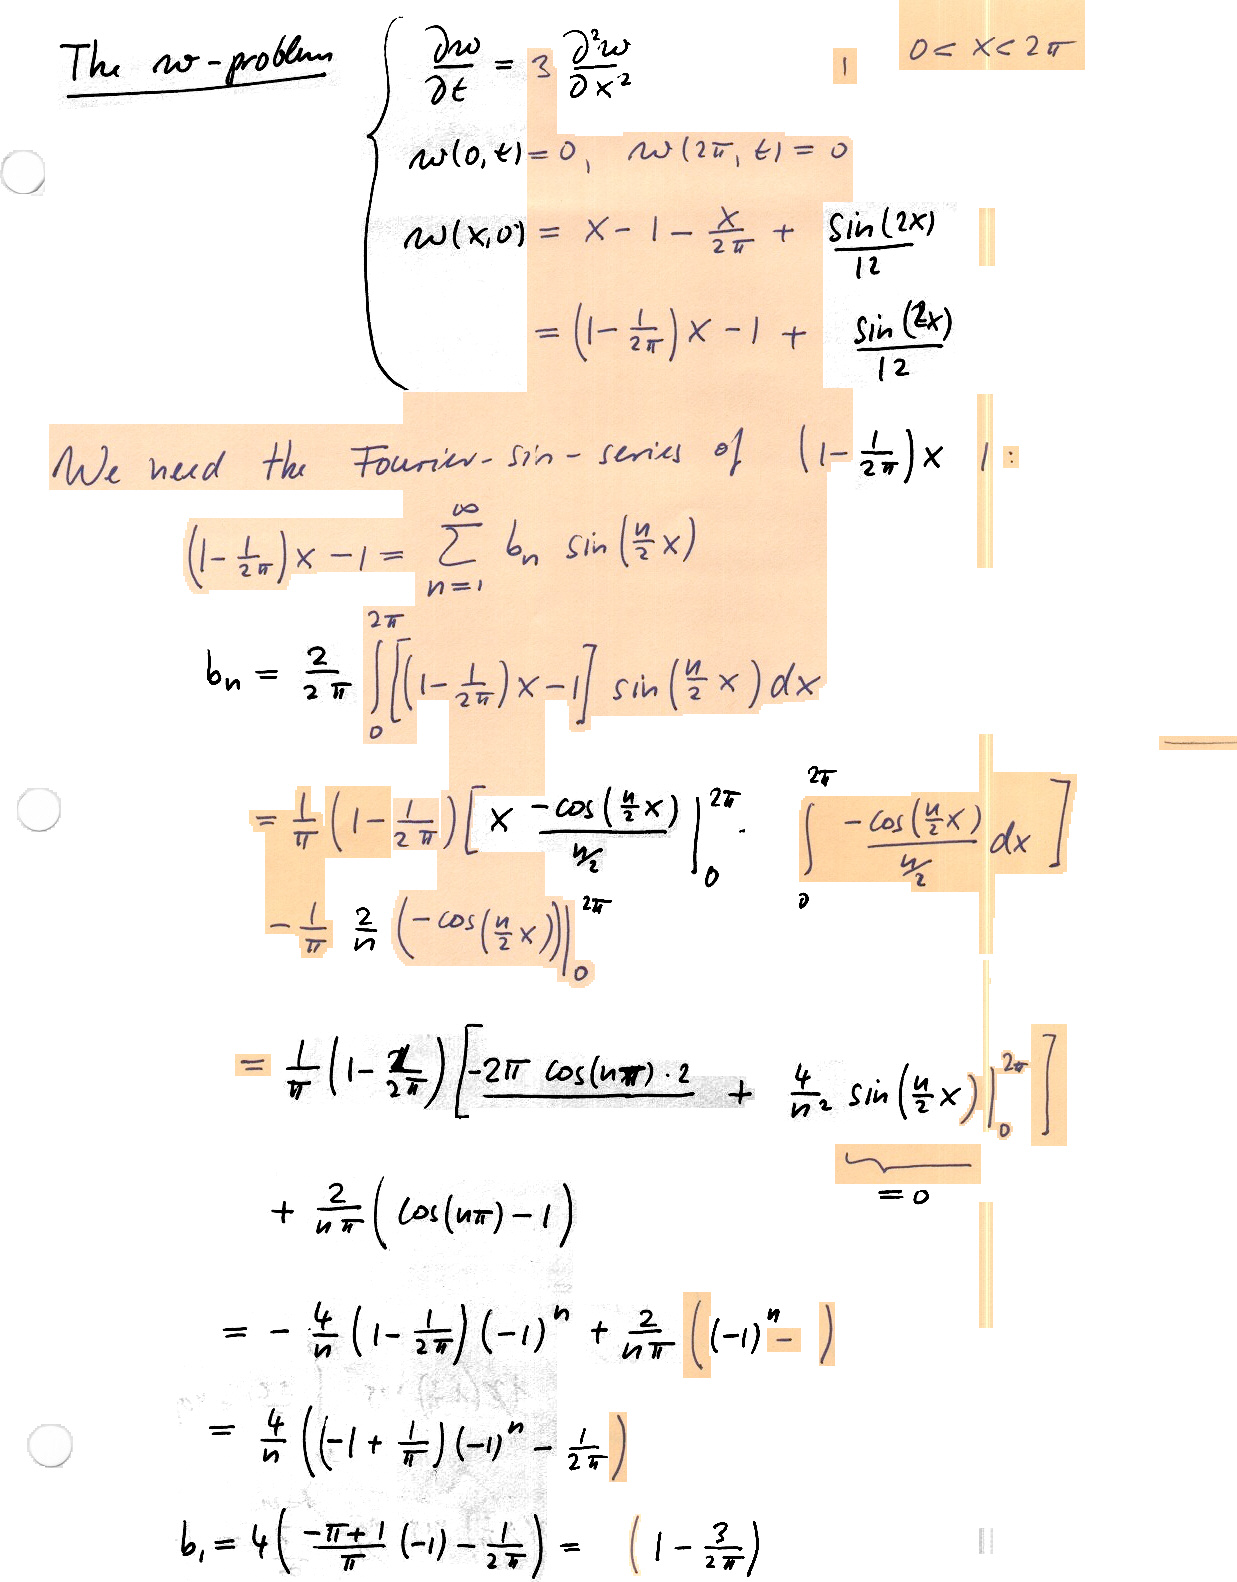 The w-problem
∂w/∂t = 3 ∂²w/∂x² 1 0 < x < 2π
w(0,t) = 0, w(2π, t) = 0
w(x,0) = x - 1 - x/2π + sin(2x)/12
= (1 - 1/2π) x - 1 + sin(2x)/12
We need the Fourier-sin-series of (1 - 1/2π) x 1 :
(1 - 1/2π) x - 1 = ∑_{n=1}^{∞} b_n sin(n/2 x)
b_n = 2/2π ∫_0^{2π} [(1 - 1/2π) x - 1] sin(n/2 x) dx
= 1/π (1 - 1/2π) [ x -cos(n/2 x)/(n/2) |_0^{2π} · ∫_0^{2π} -cos(n/2 x)/(n/2) dx ]
- 1/π 2/n (-cos(n/2 x)) |_0^{2π}
= 1/π (1 - 1/2π) [ -2π cos(nπ) · 2 + 4/n² sin(n/2 x) |_0^{2π} ]
= 0
+ 2/nπ ( cos(nπ) - 1 )
= - 4/n (1 - 1/2π) (-1)^n + 2/nπ ( (-1)^n - )
= 4/n ( (-1 + 1/π) (-1)^n - 1/2π )
b_1 = 4 ( -π+1/π (-1) - 1/2π ) = ( 1 - 3/2π )